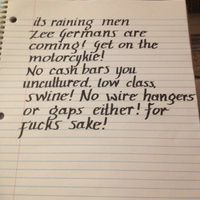 its raining men
Zee Germans are
coming! Get on the
motorcykie!
No cash bars you
uncultured, low class,
swine! No wire hangers
or gaps either! For
fucks sake!